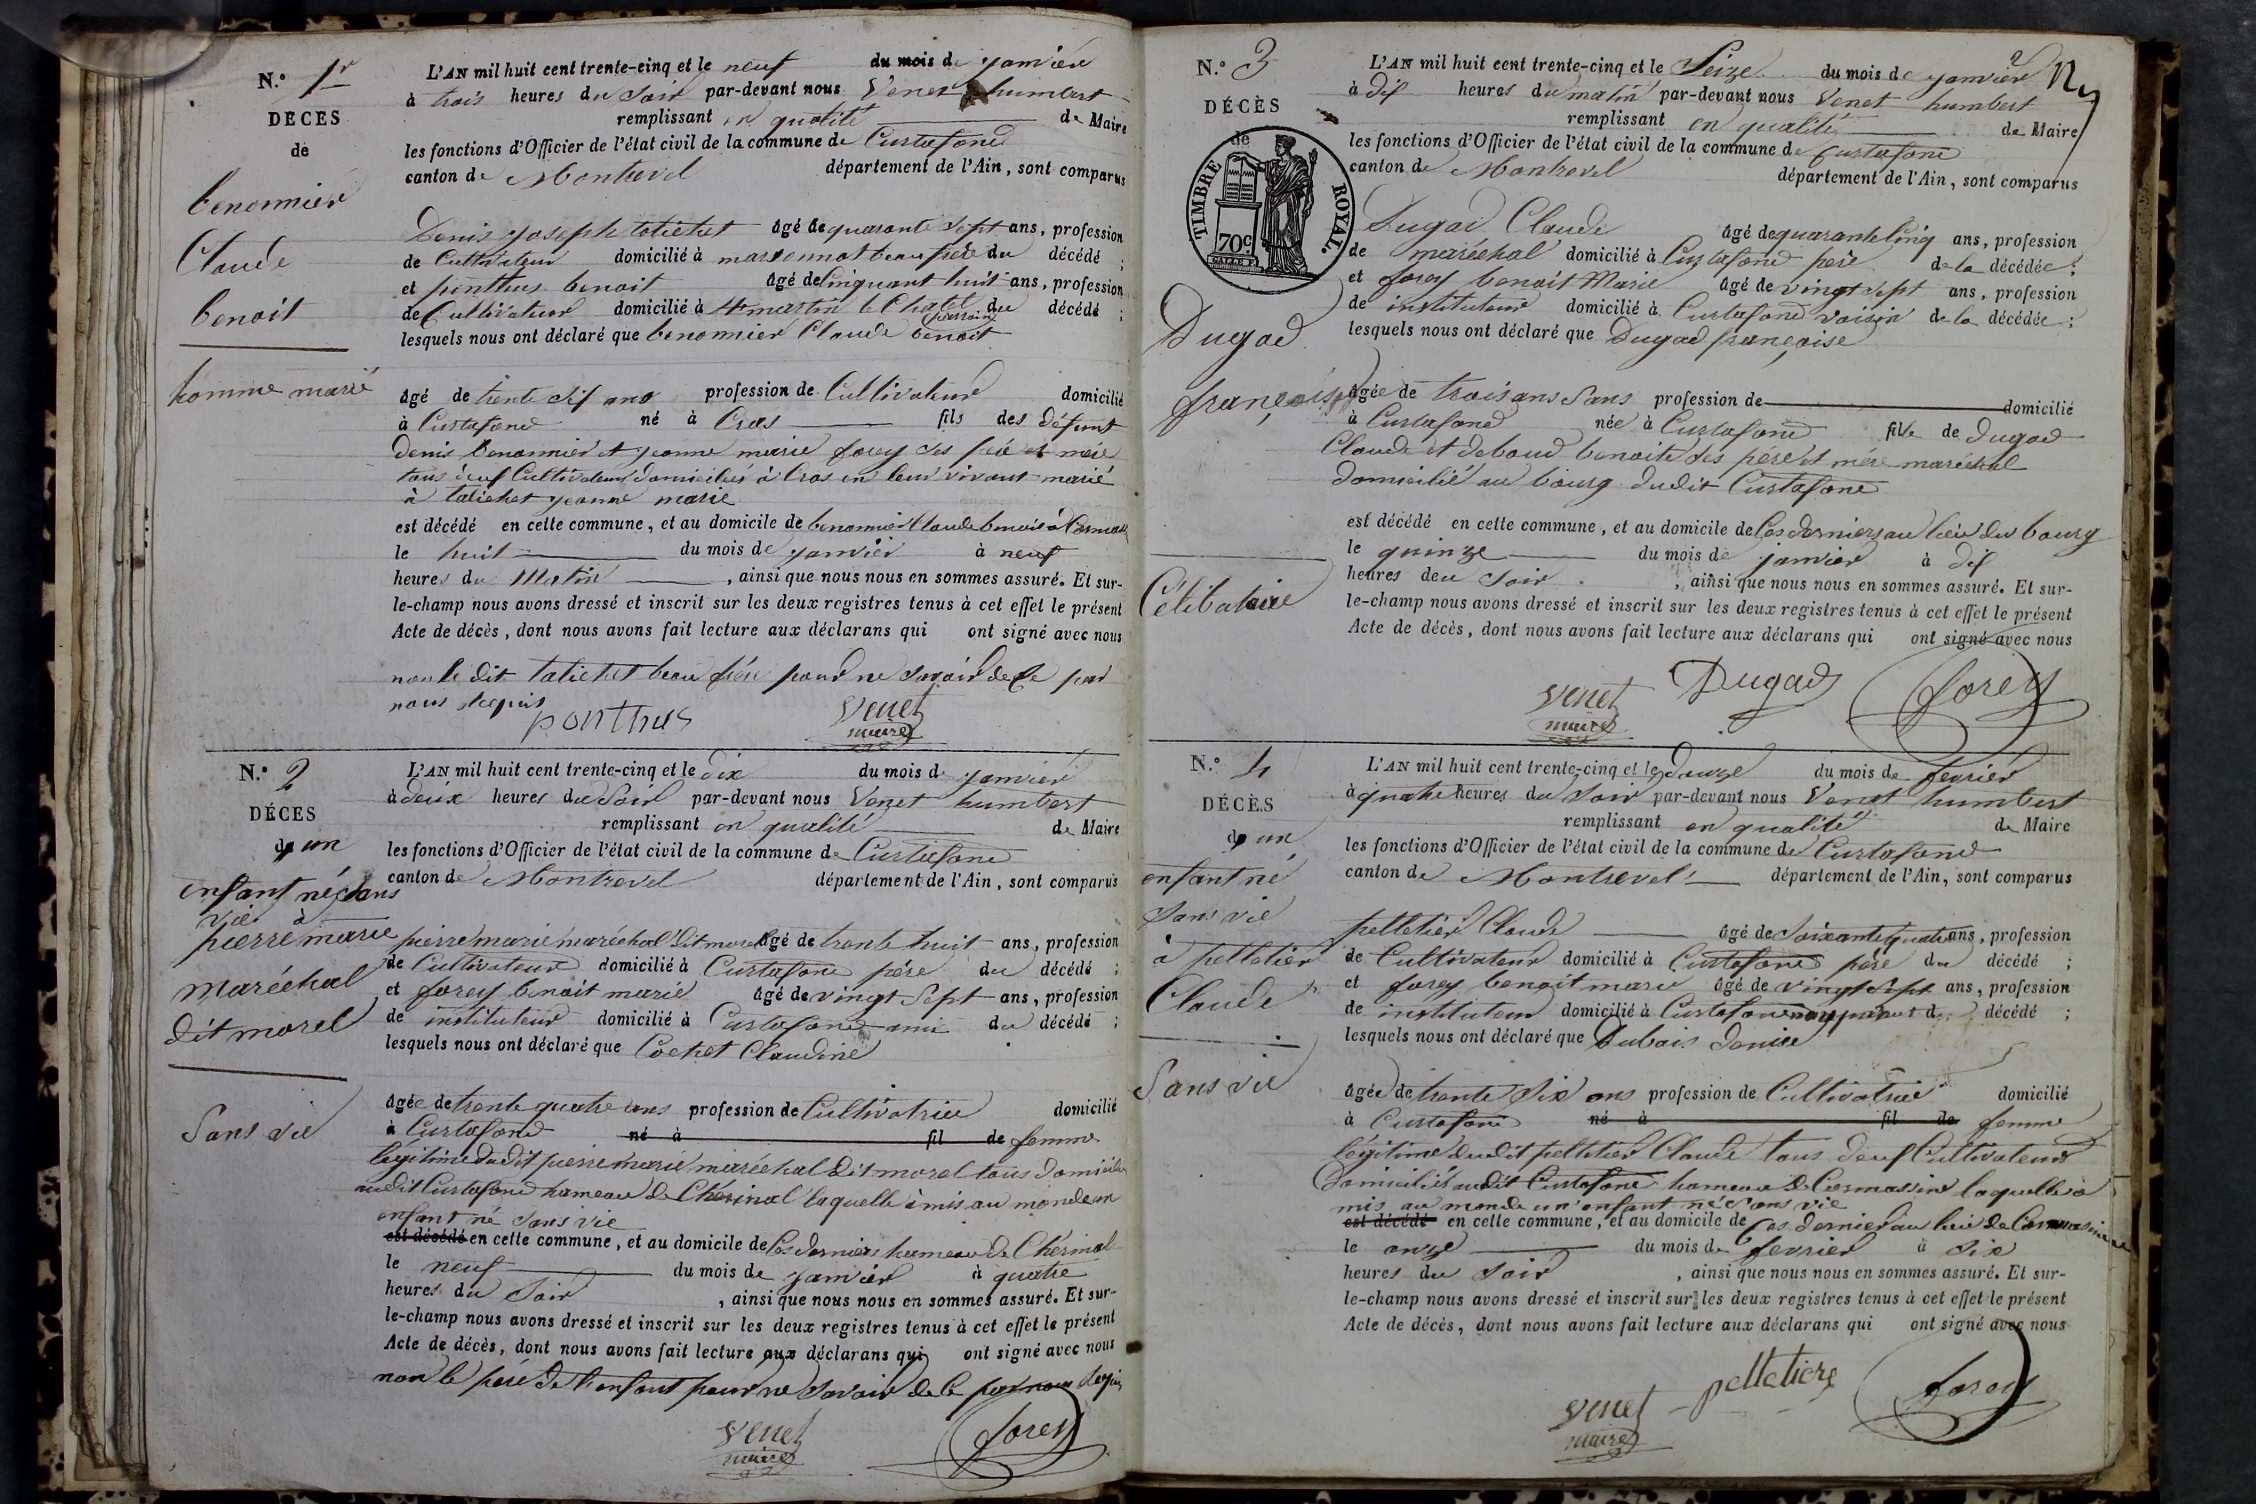 N.º 1r
DÉCÈS
de
benonnier
Claude
benoit
homme marié
L'AN mil huit cent trente-cinq et le neuf du mois de janvier
à trois heures du Soir par-devant nous Venet humbert
remplissant en qualité de Maire
les fonctions d'Officier de l'état civil de la commune de Curtafond
canton de Montrevel département de l'Ain, sont comparus
Denis joseph talichet âgé de quarante Sept ans, profession
de Cultivateur domicilié à marsonnat beau frère du décédé ;
et ponthus benoit âgé de Cinquant huit ans, profession
de Cultivateur domicilié à St martin le Chatel parrain du décédé ;
lesquels nous ont déclaré que benonnier Claude benoit
âgé de trente dix ans profession de Cultivateur domicilié
à Curtafond né à Cras fils des défunt
Denis benonnier et jeanne marie forey ses père et mère
tous deux Cultivateurs domiciliés à Cras en leur vivant marié
à talichet jeanne marie
est décédé en cette commune, et au domicile de benonnier Claude benoit à
le huit du mois de janvier à neuf
heures du Matin , ainsi que nous nous en sommes assuré. Et sur-
le-champ nous avons dressé et inscrit sur les deux registres tenus à cet effet le présent
Acte de décès, dont nous avons fait lecture aux déclarans qui ont signé avec nous
non le dit talichet beau frère pour ne Savoir de ce par
nous Requis
ponthus Venet
maire
N.º 2
DÉCES
de un
enfant né sans
vie à
pierre marie
maréchal
dit morel
Sans vie
L'AN mil huit cent trente-cinq et le dix du mois de janvier
à deux heures du Soir par-devant nous Venet humbert
remplissant en qualité de Maire
les fonctions d'Officier de l'état civil de la commune de Curtafond
canton de Montrevel département de l'Ain, sont comparus
pierre marie maréchal dit morel âgé de trente huit ans, profession
de Cultivateur domicilié à Curtafond père du décédé ;
et forey benoit marie âgé de vingt Sept ans, profession
de instituteur domicilié à Curtafond ami du décédé ;
lesquels nous ont déclaré que Cochet Claudine
âgée de trente quatre ans profession de Cultivatrice domicilié
à Curtafond né à fil de femme
légitime du dit pierre marie maréchal dit morel tous domiciliés
audit Curtafond hameau de Chérinal laquelle à mis au monde un
enfant né sans vie
est décédé en cette commune, et au domicile de Ces derniers hameau de Chérinal
le neuf du mois de janvier à quatre
heures du Soir , ainsi que nous nous en sommes assuré. Et sur-
le-champ nous avons dressé et inscrit sur les deux registres tenus à cet effet le présent
Acte de décès, dont nous avons fait lecture aux déclarans qui ont signé avec nous
non le père de l'enfant pour ne Savoir de ce par nous Requis
Venet forey
maire
2
N.º 3
DÉCÈS
de
TIMBRE ROYAL.
70c
Dugad
françoise
Célibataire
L'AN mil huit cent trente-cinq et le Seize du mois de janvier
à dix heures du matin par-devant nous Venet humbert
remplissant en qualité de Maire
les fonctions d'Officier de l'état civil de la commune de Curtafond
canton de Montrevel département de l'Ain, sont comparus
Dugad Claude âgé de quarante Cinq ans, profession
de maréchal domicilié à Curtafond père de la décédée ;
et forey benoit Marie âgé de vingt sept ans, profession
de instituteur domicilié à Curtafond voisin de la décédée ;
lesquels nous ont déclaré que Dugad françoise
âgée de trois ans Sans profession de domicilié
à Curtafond née à Curtafond fille de dugad
Claude et debout benoite ses père et mère maréchal
domicilié au bourg dudit Curtafond
est décédé en cette commune, et au domicile de Ces derniers au lieu du bourg
le quinze du mois de janvier à dix
heures deu Soir , ainsi que nous nous en sommes assuré. Et sur-
le-champ nous avons dressé et inscrit sur les deux registres tenus à cet effet le présent
Acte de décès, dont nous avons fait lecture aux déclarans qui ont signé avec nous
Venet Dugad forey
maire
N.º 4
DÉCÈS
de un
enfant né
sans vie
à pelletier
Claude
Sans vie
L'AN mil huit cent trente-cinq et le douze du mois de fevrier
à quatre heures du Soir par-devant nous Venet humbert
remplissant en qualité de Maire
les fonctions d'Officier de l'état civil de la commune de Curtafond
canton de Montrevel département de l'Ain, sont comparus
pelletier Claude âgé de Soixante quatre ans, profession
de Cultivateur domicilié à Curtafond père du décédé ;
et forey benoit marie âgé de vingt Sept ans, profession
de instituteur domicilié à Curtafond non parent du décédé ;
lesquels nous ont déclaré que Dubois denise
âgée de trente Six ans profession de Cultivatrice domicilié
à Curtafond né à fil de femme
légitime dudit pelletier Claude tous deux Cultivateurs
Domiciliés audit Curtafond hameau de Cormassine laquelle à
mis au monde un enfant né Sans vie
est décédé en cette commune, et au domicile de Ces derniers au lieu de Cormassine
le onze du mois de fevrier à Six
heures du Soir , ainsi que nous nous en sommes assuré. Et sur-
le-champ nous avons dressé et inscrit sur les deux registres tenus à cet effet le présent
Acte de décès, dont nous avons fait lecture aux déclarans qui ont signé avec nous
Venet pelletiere forey
maire